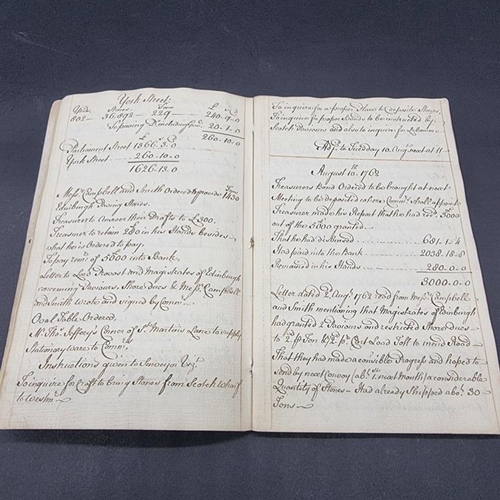 York Street
Yds Stones Tons £ s d
802 - 36,092 - 229 - 240.9.0
To paving Do including 20.1.0
260.10.0
£ s d
Parliament Street 1366.3.0
York Street 260.10.0
1626.13.0
Messrs Campbell and Smith Ordered to provide 1430 Tons
Edinburgh Paving Stones.
Treasurer to Answer their Drafts to £300.
Treasurer to retain 280 in his Hands besides
what he is Ordered to pay.
To pay remr. of 5000 into Bank.
Letter to Lord Provost and Magistrates of Edinburgh
concerning Stone dues to Messrs Campbell
and Smith wrote and signed by Commrs.
Oval Table Ordered.
Mr. Thos. Jefferys Corner of St. Martins Lane to supply
Stationary ware to Commrs.
Instructions given to Surveyor Vizt.
To inquire for Craft to bring Stones from Scotch Wharf
to Westmr.
To inquire for a proper Place to deposite Stones.
To inquire for proper to be instructed by
Scotch Paviours and also to inquire for Labourers.
Adjd. to Tuesday 10 Augst. next at 11
August 10. 1762
Treasurers Bond Ordered to be brought at next
Meeting to be deposited where Commrs. shall appoint
Treasurer made his Report that he had recd. 5000
out of the 5000 granted.
That he had disbursed 681.1.4
Had paid into the Bank 2038.18.8
Remained in his Hands 280.0.0
3000.0.0
Letter dated 2d. Augt. 1762 read from Messrs Campbell
and Smith mentioning that Magistrates of Edinburgh
had granted 2 Paviours and restricted Stone dues
to 2d. p Ton & 2d. p Cart Load Toll to mend Road
That they had made a considble. Progress and hoped to
send by next Convoy (abt. 1st. next Month) a considerable
Quantity of Stones - Had already Shipped abot. 30
Tons